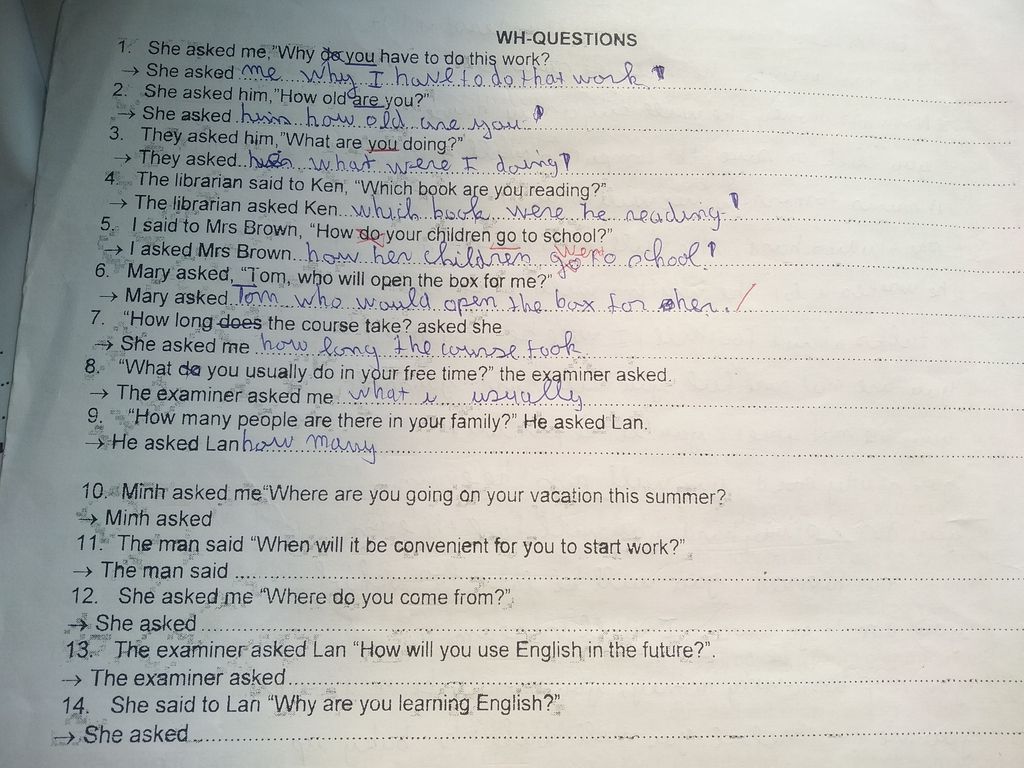 WH-QUESTIONS
1. She asked me,"Why do you have to do this work?
→ She asked me why I have to do that work
2. She asked him,"How old are you?"
→ She asked him how old are you
3. They asked him,"What are you doing?"
→ They asked him what were I doing
4. The librarian said to Ken, "Which book are you reading?"
→ The librarian asked Ken which book were he reading
5. I said to Mrs Brown, "How do your children go to school?"
→ I asked Mrs Brown how her children go went to school
6. Mary asked, "Tom, who will open the box for me?"
→ Mary asked Tom who would open the box for her.
7. "How long does the course take? asked she
→ She asked me how long the course took
8. "What do you usually do in your free time?" the examiner asked.
→ The examiner asked me what i usually
9. "How many people are there in your family?" He asked Lan.
→ He asked Lan how many
10. Minh asked me"Where are you going on your vacation this summer?
→ Minh asked
11. The man said "When will it be convenient for you to start work?"
→ The man said
12. She asked me "Where do you come from?"
→ She asked
13. The examiner asked Lan "How will you use English in the future?".
→ The examiner asked
14. She said to Lan "Why are you learning English?"
→ She asked